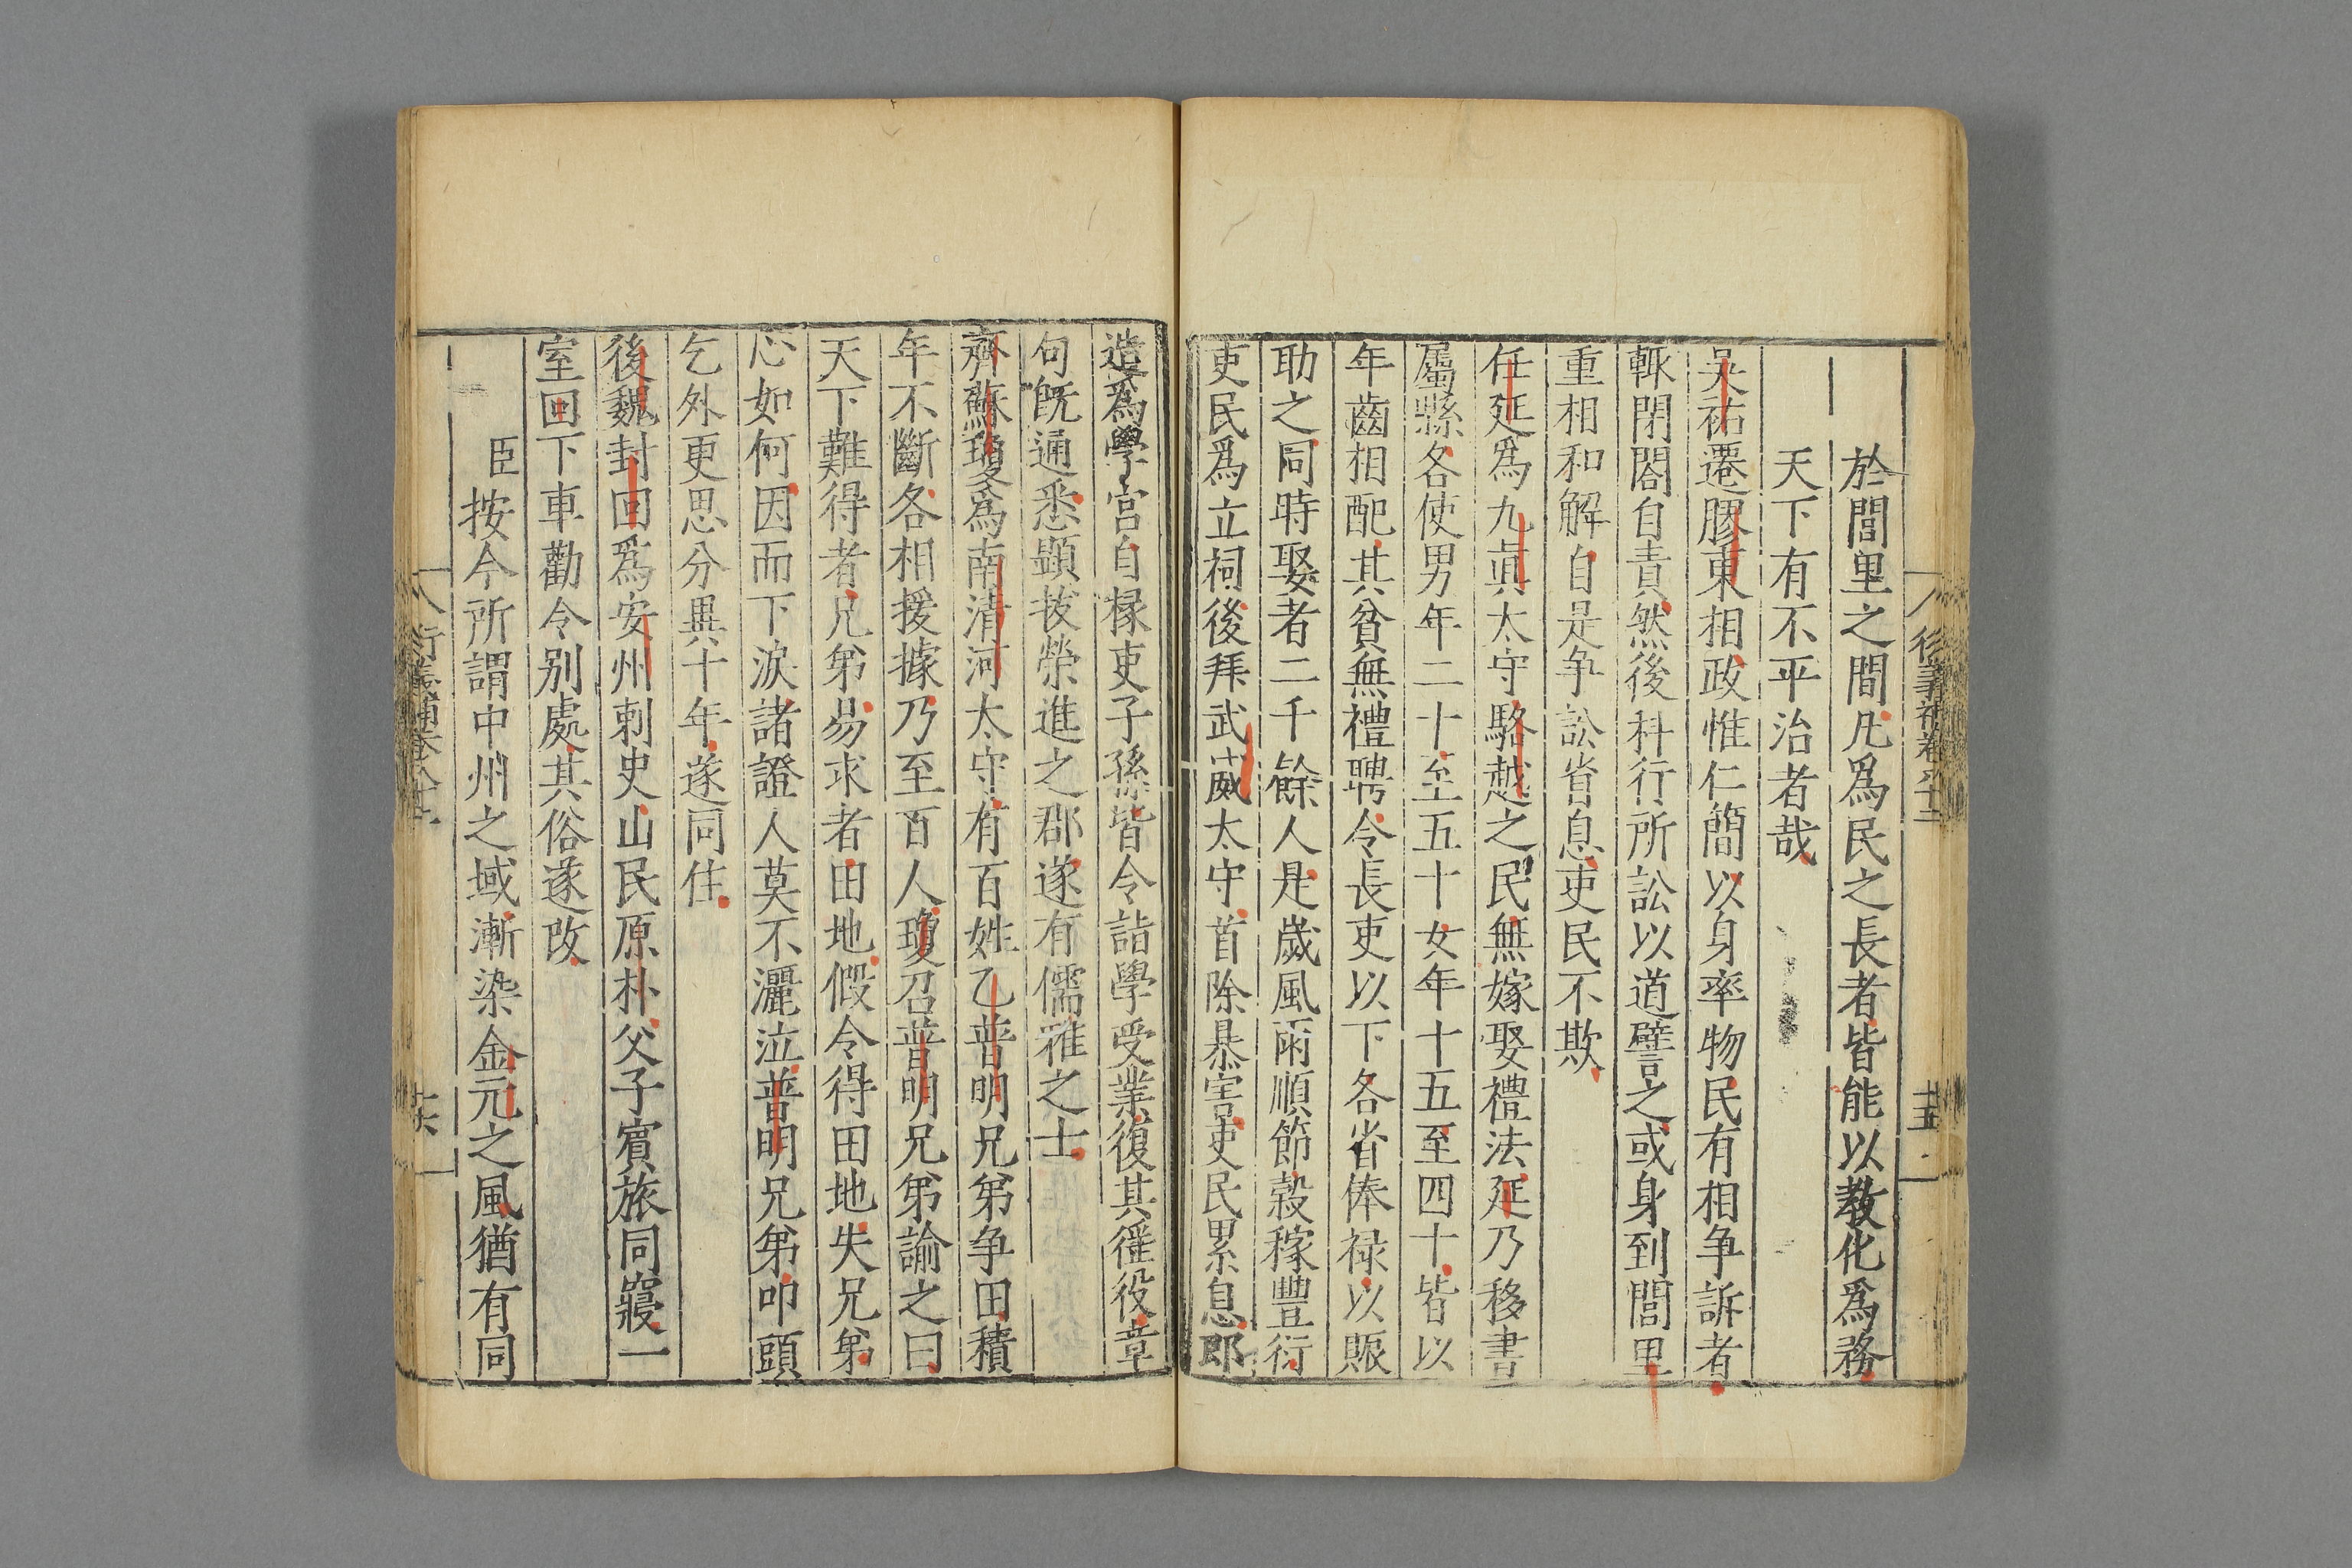 於閭里之間凡爲民之長者皆能以教化爲務
天下有不平治者哉
吳祐遷膠東相政惟仁簡以身率物民有相爭訴者
輒閉閤自責然後科行所訟以道譬之或身到閭里
重相和解自是争訟省息吏民不欺
任延爲九真太守駱越之民無嫁娶禮法延乃移書
屬縣各使男年二十至五十女年十五至四十皆以
年齒相配其貧無禮聘令長吏以下各省俸禄以賑
助之同時娶者二千餘人是歲風雨順節穀稼豐衍
吏民爲立祠後拜武威太守首除暴害吏民累息郎
造爲學宮自椽吏子孫皆令詣學受業復其徭役章
句旣通悉顯拔榮進之郡遂有儒雅之士
齊蘇瓊爲南清河太守有百姓乙普明兄弟争田積
年不斷各相援據乃至百人瓊召普明兄弟諭之曰
天下難得者兄弟易求者田地假令得田地失兄弟
心如何因而下淚諸證人莫不灑泣普明兄弟叩頭
乞外更思分異十年遂同住
後魏封回爲安州刺史山民原朴父子賓旅同寢一
室回下車勸令别處其俗遂改
臣按今所謂中州之域漸染金元之風猶有同